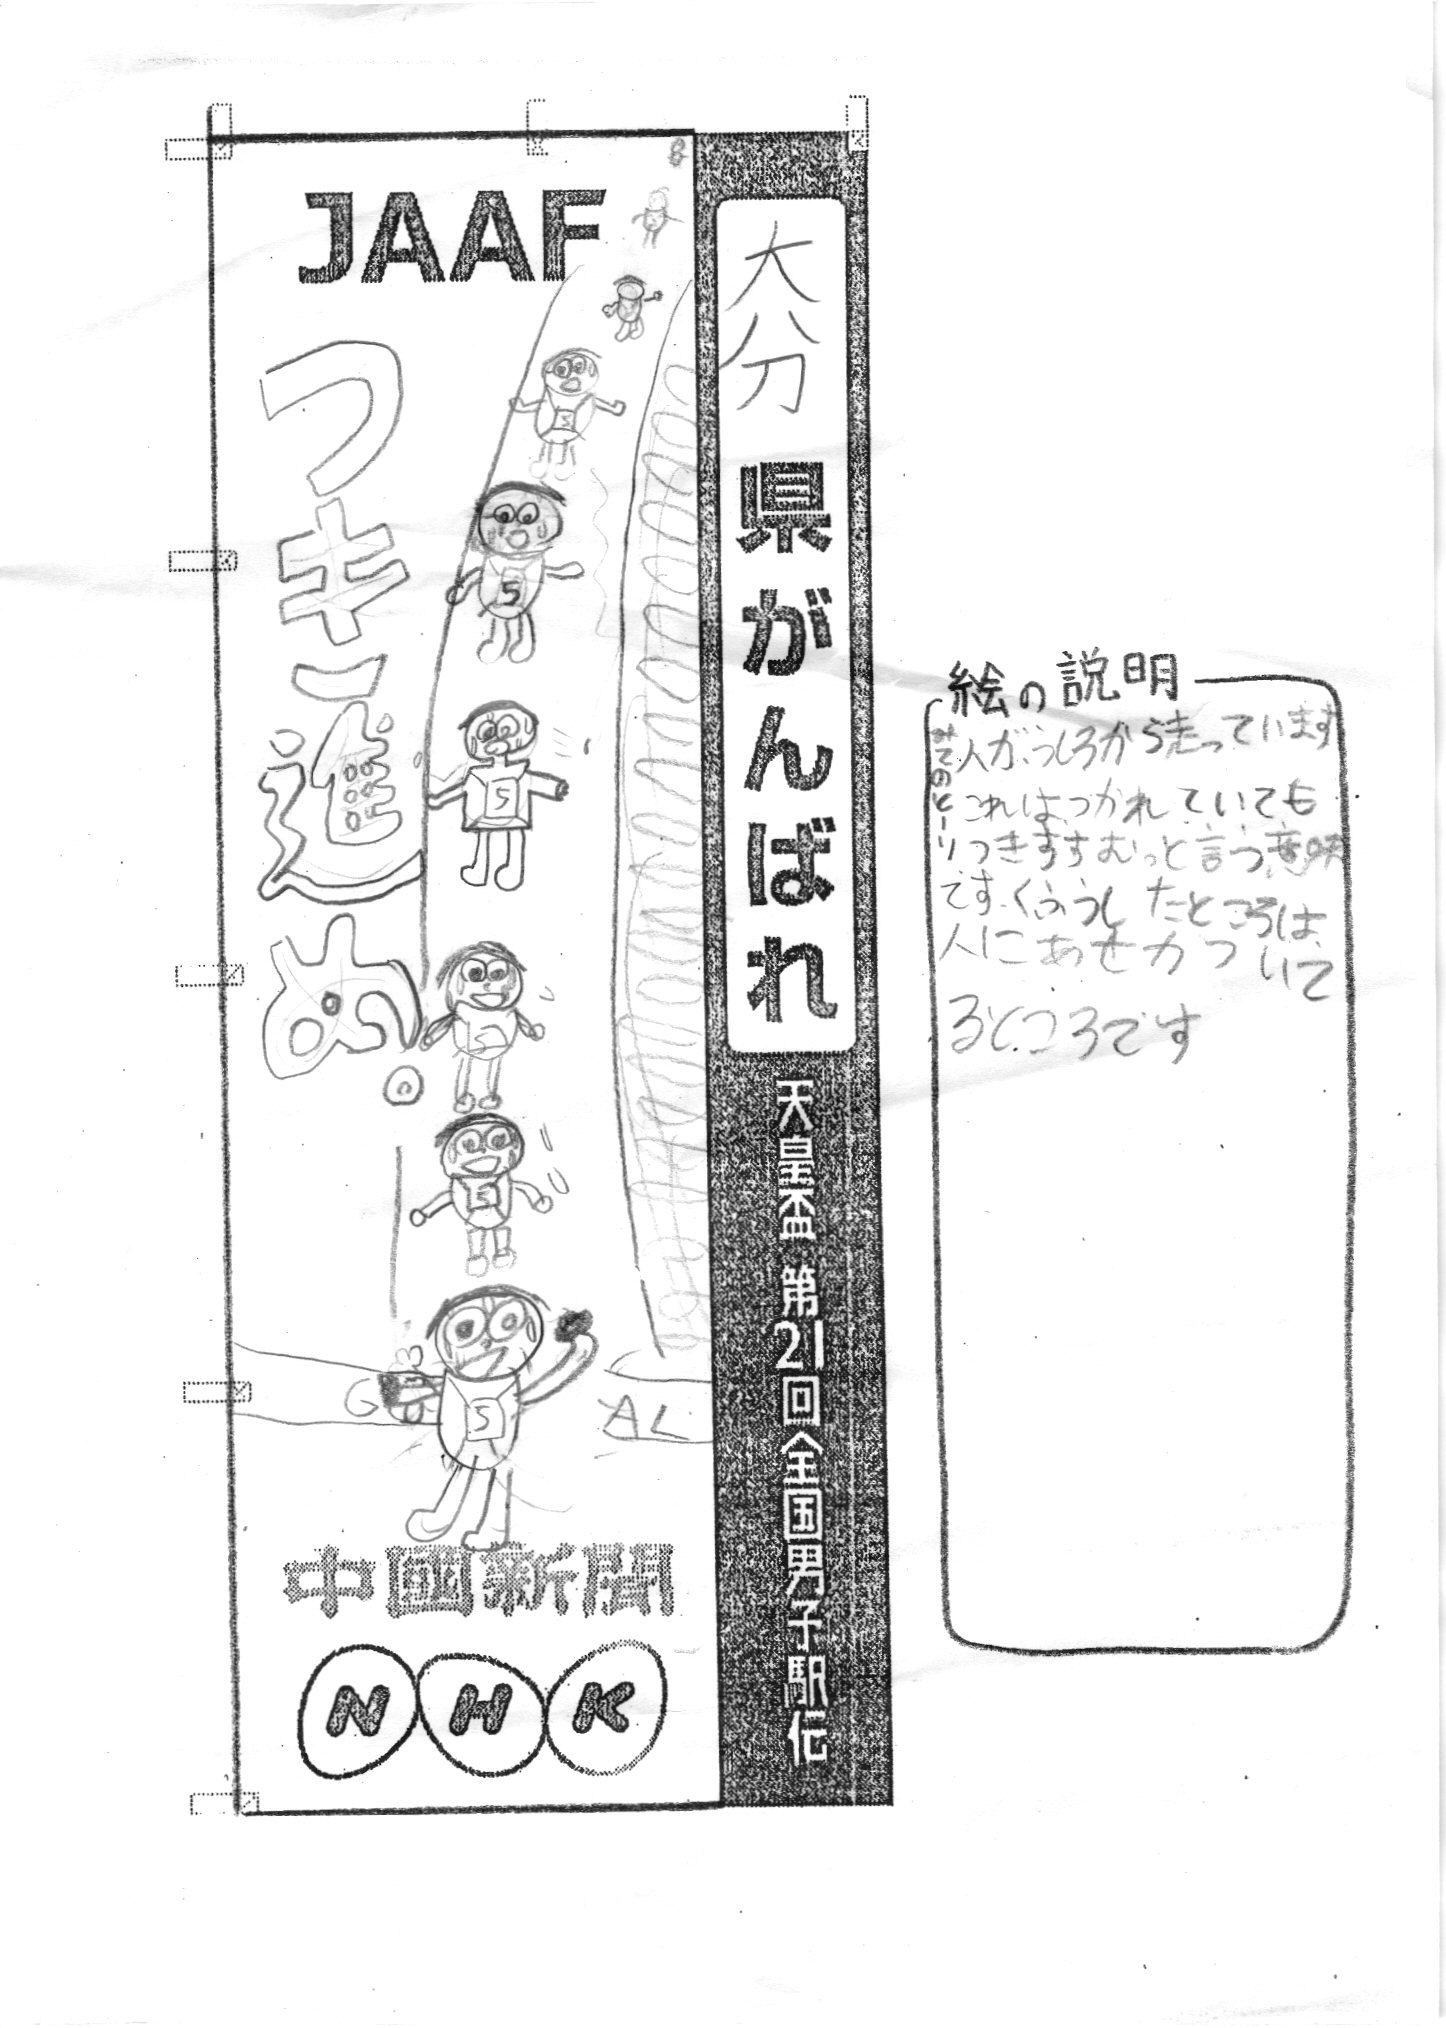 JAAF
つき進め。
5
5
5
5
5
5
5
G
AL
中國新聞
NHK
大分県がんばれ
天皇盃 第21回全国男子駅伝
絵の説明
みてのとーり
人が、うしろから走っています
これは、つかれていても
つきすすむっと言う意味
です。くふうしたところは、
人にあせがついて
るところです